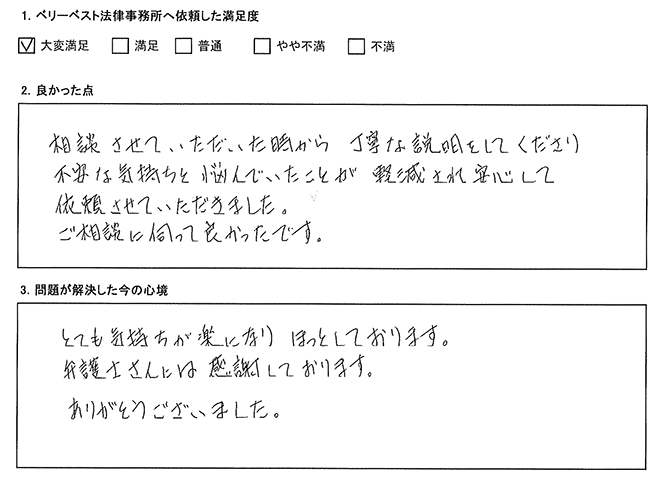 1. ベリーベスト法律事務所へ依頼した満足度
☑ 大変満足 □ 満足 □ 普通 □ やや不満 □ 不満
2. 良かった点
相談させていただいた時から 丁寧な説明をしてくださり
不安な気持ちと悩んでいたことが 軽減され安心して
依頼させていただきました。
ご相談に伺って良かったです。
3. 問題が解決した今の心境
とても気持ちが楽になり ほっとしております。
弁護士さんには感謝しております。
ありがとうございました。